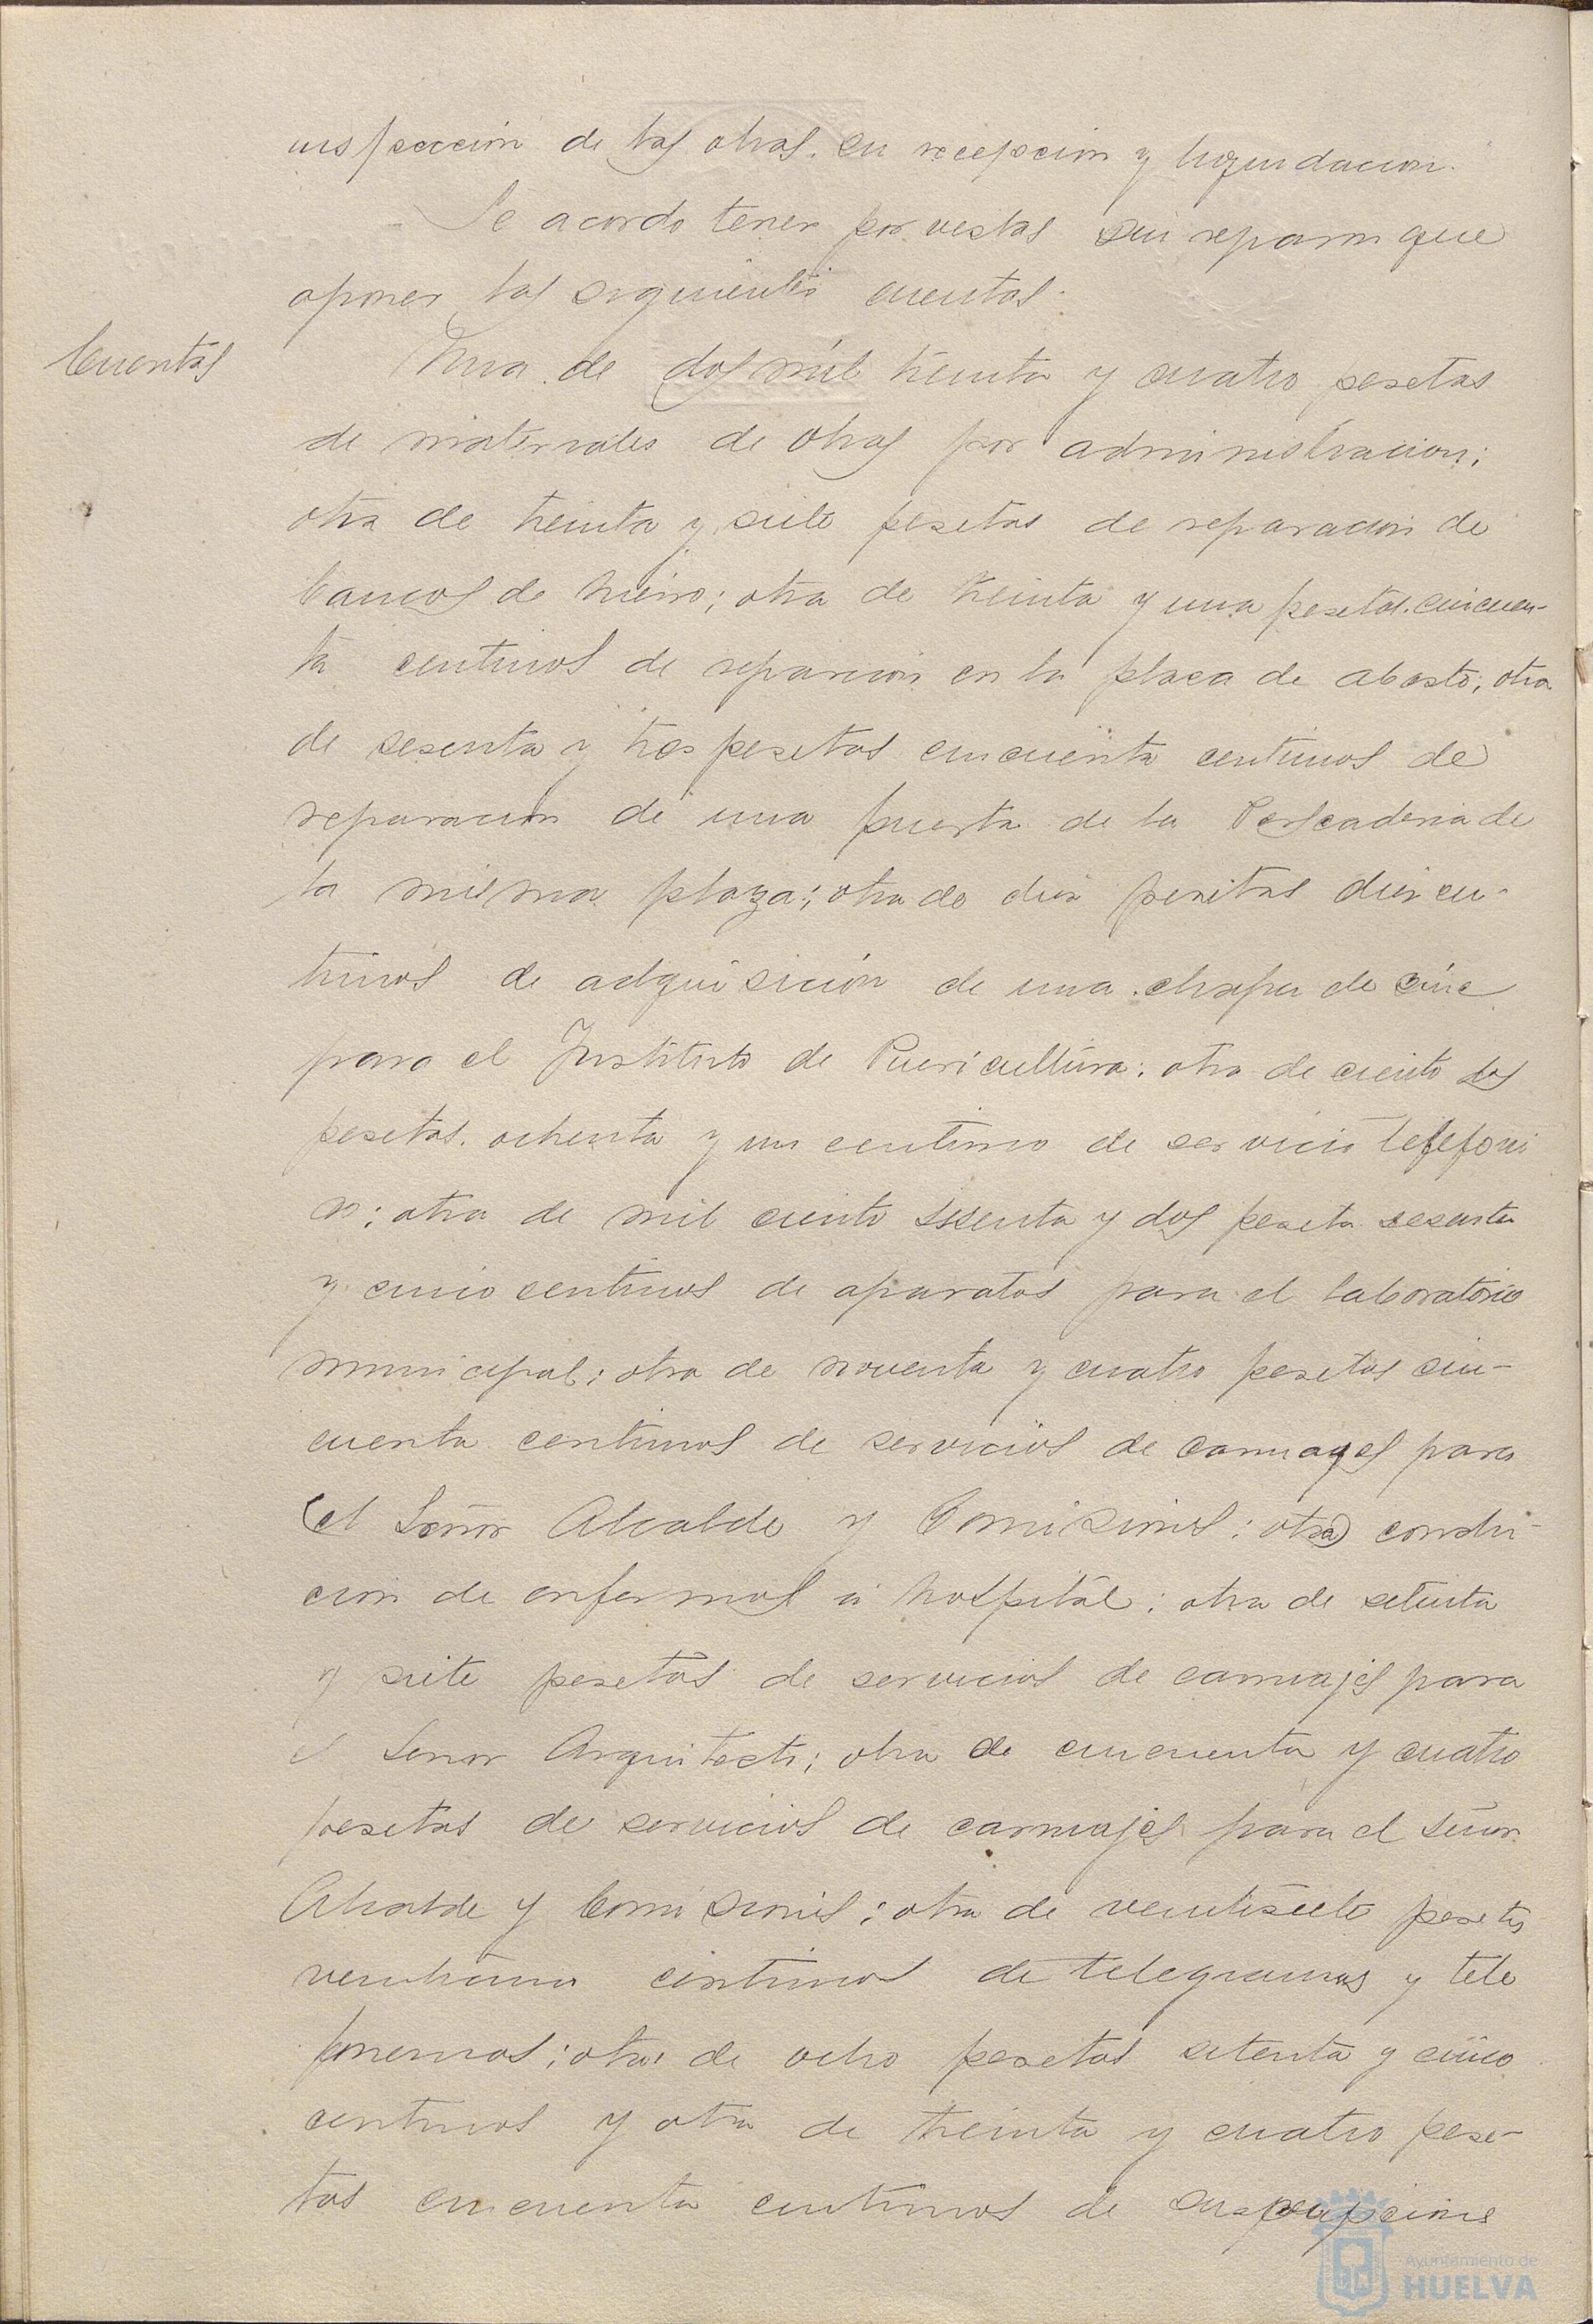 inspeccion de las obras. su recepcion y liquidacion.
Se acordo tener por vistas sin reparos que
oponer las siguientes cuentas.
Cuentas
Una de dos mil treinta y cuatro pesetas
de materiales de obras por administracion;
otra de treinta y siete pesetas de reparacion de
bancos de hierro; otra de treinta y una pesetas. cincuen-
ta centimos de reparacion en la plaza de abasto; otra
de sesenta y tres pesetas cincuenta centimos de
reparacion de una puerta de la Pescaderia de
la misma plaza; otra de diez pesetas diez cen-
timos de adquisición de una chapa de cinc
para el Instituto de Puericultura; otra de ciento dos
pesetas. ochenta y un centimo de servicio telefoni
co; otra de mil ciento sesenta y dos peseta sesenta
y cinco centimos de aparatos para el laboratorio
municipal; otra de noventa y cuatro pesetas cin-
cuenta centimos de servicios de carruages para
el Señor Alcalde y Comisiones; otra conduc-
cion de enfermos a hospital; otra de setenta
y siete pesetas de servicios de carruajes para
el Señor Arquitecto; otra de cincuenta y cuatro
pesetas de servicios de carruajes para el Señor
Alcalde y Comisiones; otra de veintisiete pesetas
veintiuno centimos de telegramas y tele
fonemas; otra de ocho pesetas setenta y cinco
centimos y otra de treinta y cuatro pese-
tas cincuenta centimos de suscripciones
Ayuntamiento de
HUELVA